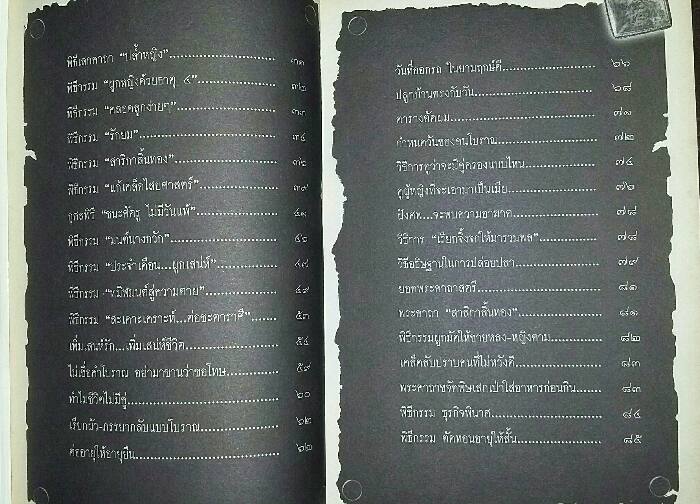 พิธีเสกคาถา "ปล้ำหญิง".......... ๓๑
พิธีกรรม "ผูกหญิงด้วยธาตุ ๔".......... ๓๒
พิธีกรรม "คลอดลูกง่ายๆ".......... ๓๓
พิธีกรรม "รักยม".......... ๓๔
พิธีกรรม "สาริกาลิ้นทอง".......... ๓๖
พิธีกรรม "แก้เคล็ดไสยศาสตร์".......... ๓๙
"ชนะศัตรู ไม่มีวันแพ้".......... ๔๑
พิธีกรรม "มนต์นางกวัก".......... ๔๖
พิธีกรรม "ประจำเดือน...ผูกเสน่ห์".......... ๔๘
พิธีกรรม "มนต์สู่ความตาย".......... ๔๙
พิธีกรรม "สะเดาะเคราะห์...ต่อชะตาราศี".......... ๕๓
เพิ่มเสน่ห์รัก...เพิ่มเสน่ห์ชีวิต.......... ๕๕
ไม่เชื่อคำโบราณ อย่ามาขานว่าขอโทษ.......... ๕๙
ทำไมชีวิตไม่มีคู่.......... ๖๐
เรียกผัว-ภรรยากลับแบบโบราณ.......... ๖๒
ต่ออายุให้อายุยืน.......... ๖๒
วันที่ออกรถ ในยามฤกษ์ดี.......... ๖๖
ปลูกบ้านตรงกับวัน.......... ๖๘
ตารางตัดผม.......... ๗๑
กำหนดวันของคนโบราณ.......... ๗๒
วิธีการดูว่าจะมีคู่ครองแบบไหน.......... ๗๔
ดูผู้หญิงที่จะเอามาเป็นเมีย.......... ๗๖
ฝังศพ...จะพบความอาฆาต.......... ๗๘
วิธีการ "เรียกจิ้งจกให้มารวมพล".......... ๗๘
วิธีอธิษฐานในการปล่อยปลา.......... ๗๙
ยอดพระคาถาสตรี.......... ๘๑
พระคาถา "สาริกาลิ้นทอง".......... ๘๑
พิธีกรรมผูกมัดให้ชายหลง-หญิงตาม.......... ๘๒
เคล็ดลับปราบคนที่ไม่หวังดี.......... ๘๓
พระคาถาขจัดพิษเสกเป่าใส่อาหารก่อนกิน.......... ๘๓
พิธีกรรม ธุรกิจพินาศ.......... ๘๔
พิธีกรรม ตัดทอนอายุให้สั้น.......... ๘๕